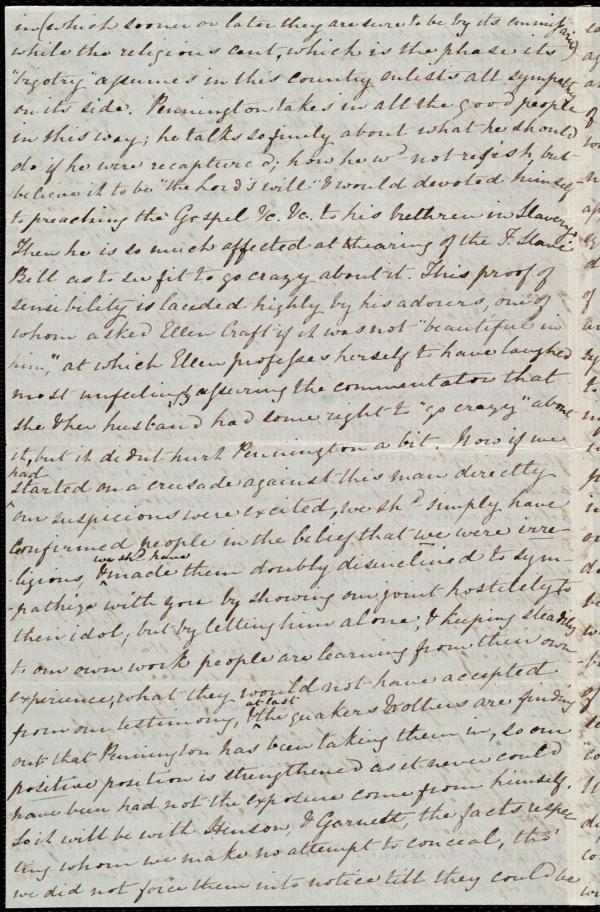 in (which sooner or later they are sure to be by its
while the religious cant, which is the phase its
"bigotry" assumes in this country enlists all sympathy
on its side. Pennington takes in all the good people
in this way; he talks so finely about what he should
do if he were recaptured; how he wd not resist, but
believe it to be "the Lord's will" & would devoted himself
to preaching the Gospel &c. &c. to his brethren in Slavery.
Then he is so much affected at hearing of the F. Slave
Bill as to see fit to go crazy about it. This proof of
sensibility is lauded highly by his adorers, one of
whom asked Ellen Craft if it was not "beautiful in
him," at which Ellen professes herself to have laughed
most unfeelingly, assuring the commentator that
she & her husband had some right to "go crazy" about
it, but it didn't hurt Pennington a bit. Now if we
had
started on a crusade against this man directly
our suspicions were excited, we shd simply have
confirmed people in the belief that we were irre-
we shd have
-ligious, & made them doubly disinclined to sym-
-pathize with you by showing our joint hostility to
their idol; but by letting him alone, & keeping steadily
to our own work people are learning from their own
experience, what they would not have accepted
at last
from our testimony, & the quakers & others are finding
out that Pennington has been taking them in, so our
positive position is strengthened as it never could
have been had not the exposure come from himself.
So it will be with Henson, & Garnett, the facts respec-
ting whom we make no attempt to conceal, tho'
we did not force them into notice till they could be